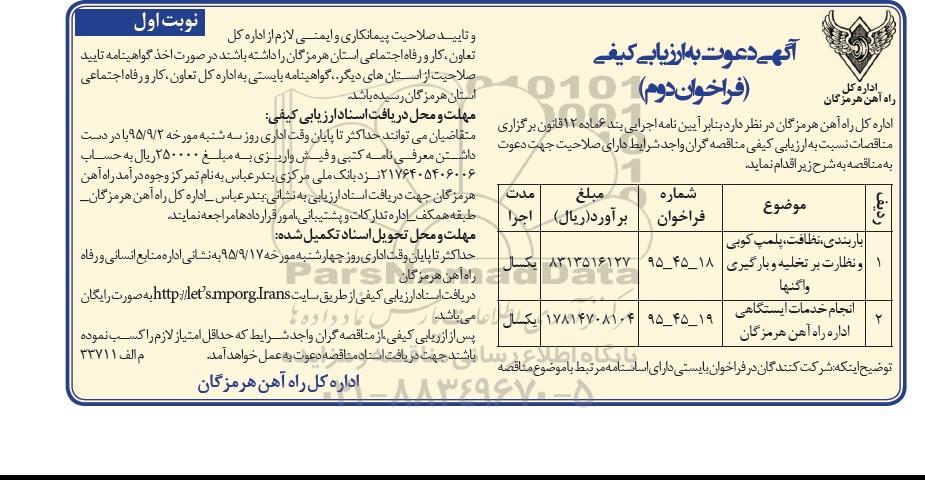 نوبت اول
اداره کل
راه آهن هرمزگان
آگهی دعوت به ارزیابی کیفی
(فراخوان دوم)
اداره کل راه آهن هرمزگان در نظر دارد بنابر آیین نامه اجرایی بند ۶ ماده ۱۲ قانون برگزاری
مناقصات نسبت به ارزیابی کیفی مناقصه گران واجد شرایط دارای صلاحیت جهت دعوت
به مناقصه به شرح زیر اقدام نماید.
ردیف موضوع شماره فراخوان مبلغ برآورد(ریال) مدت اجرا
۱ باربندی،نظافت،پلمپ کوبی و نظارت بر تخلیه و بارگیری واگنها ۱۸_۴۵_۹۵ ۸۳۱۳۵۱۶۱۲۷ یکسال
۲ انجام خدمات ایستگاهی اداره راه آهن هرمزگان ۱۹_۴۵_۹۵ ۱۷۸۱۴۷۰۸۱۰۴ یکسال
توضیح اینکه:شرکت کنندگان در فراخوان بایستی دارای اساسنامه مرتبط با موضوع مناقصه
و تاییـد صلاحیت پیمانکاری و ایمنـی لازم از اداره کل
تعاون ، کار و رفاه اجتماعی استان هرمزگان را داشته باشند در صورت اخذ گواهینامه تایید
صلاحیت از اسـتان های دیگر، ،گواهینامه بایستی به اداره کل تعاون ، کار و رفاه اجتماعی
استان هرمزگان رسیده باشد.
مهلت و محل دریافت اسناد ارزیابی کیفی:
متقاضیان می توانند حداکثر تا پایان وقت اداری روز سه شنبه مورخه ۹۵/۹/۲ با در دست
داشتن معرفی نامه کتبی و فیش واریزی به مبلغ ۲۵۰۰۰۰ ریال به حساب
۲۱۷۶۴۰۵۴۰۶۰۰۶ نـزد بانک ملی مرکزی بندرعباس به نام تمرکز وجوه درآمد راه آهن
هرمزگان جهت دریافت اسناد ارزیابی به نشانی:بندرعباس _اداره کل راه آهن هرمزگان_
طبقه همکف_اداره تدارکات و پشتیبانی،امور قراردادها مراجعه نمایند.
مهلت و محل تحویل اسناد تکمیل شده:
حداکثر تا پایان وقت اداری روز چهارشنبه مورخه ۹۵/۹/۱۷ به نشانی اداره منابع انسانی و رفاه
راه آهن هرمزگان
دریافت اسناد ارزیابی کیفی از طریق سایت http://let's.mporg.Irans به صورت رایگان
می باشد.
پس از ارزیابی کیفی،از مناقصه گران واجد شـرایط که حداقل امتیاز لازم را کسـب نموده
باشند جهت دریافت اسناد مناقصه دعوت به عمل خواهد آمد. م الف ۳۳۷۱۱
اداره کل راه آهن هرمزگان
ParsNamadData
پایگاه اطلاع رسانی مناقصه و مزایده
۰۲۱-۸۸۳۴۹۶۷۰-۵